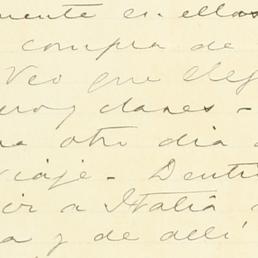 mente en ellas
compra de
Veo que eleg
ero y clases -
na otro dia
viaje - Dentro
ir a Italia
a y de allí